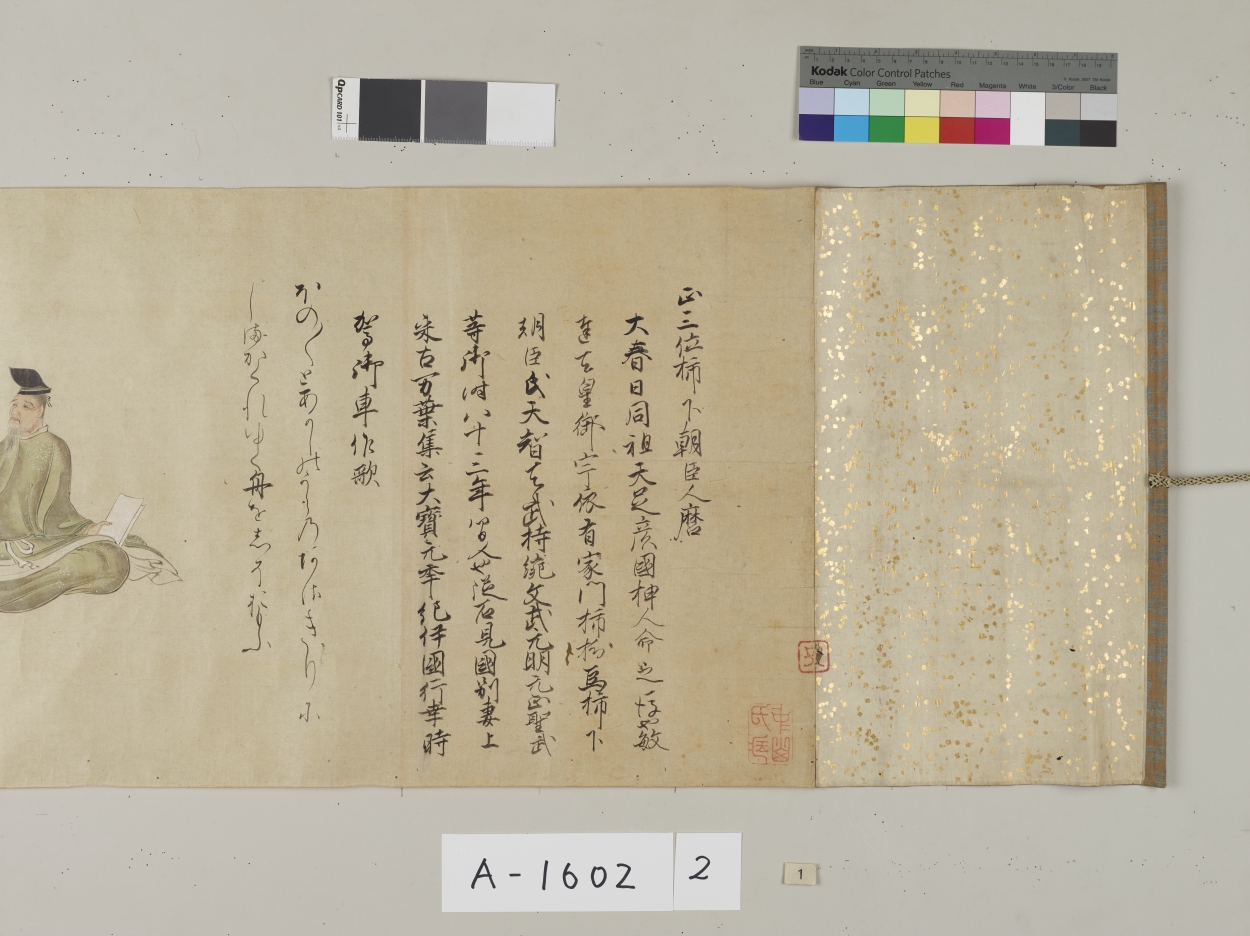 正三位柿下朝臣人麿
大春日同祖天足彦國押人命之後敏
達天皇御宇依有家門柿樹為柿下
朝臣氏天智天武持統文武元明元正聖武
等御時八十三年間人也従石見國別妻上
来古万葉集云大寳元年紀伊國行幸時
駕御車作歌
ほの〱とあかしのうらのあさきりに
しまかくれゆく舟をしそおもふ
Kodak Color Control Patches
Blue Cyan Green Yellow Red Magenta White 3/Color Black
QPCARD 101
A-1602 2
1